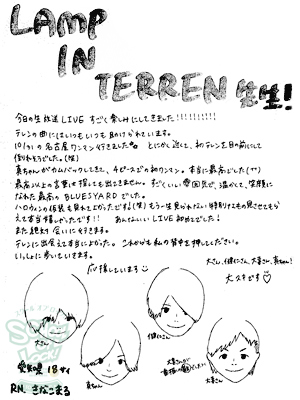 LAMP
IN
TERREN 先生!
今日の生放送LIVE すごく楽しみにしてきました!!!!!!!!!!
テレンの曲にはいつもいつも助けられています。
10/31の名古屋ワンマン行きました とにかく近くて、初テレンを目の前にして
倒れそうでした。(笑)
真ちゃんがカムバックしてきて、4ピースでの初ワンマン。本当に最高でした(^^)
最高以上の言葉で探っても出てきません。すごくいい雰囲気で、温かくて、笑顔に
なれた最高のBLUESYARDでした。
ハロウィンの仮装も見れてよかったです(笑) もう一生見られない
えて本当嬉しかったです!! あんないいLIVE初めてでした!
また絶対会いに行きます。
テレンに出会えて本当によかった。これからも私の背中を押してください。
いっしょに歩いていきます。
応援しています
大さん、健仁さん、大喜さん、真ちゃん!
大スキです
大さん
真ちゃん
健仁さん
大喜さん
愛知県 18才
RN. きなこまる